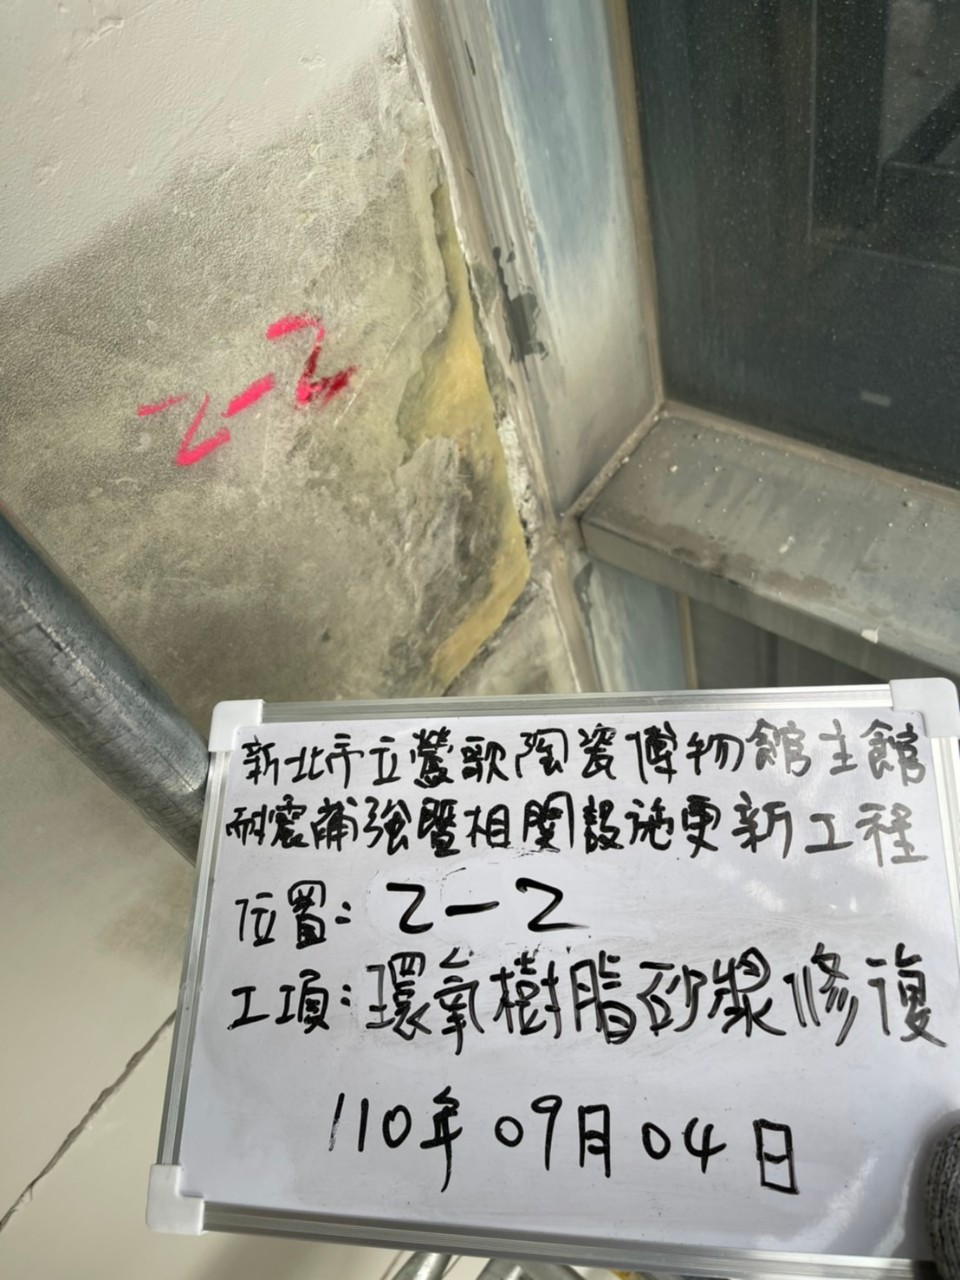 2-2
新北市立鶯歌陶瓷博物館主館
耐震補強暨相關設施更新工程
位置：2-2
工項：環氧樹脂砂漿修復
110年09月04日